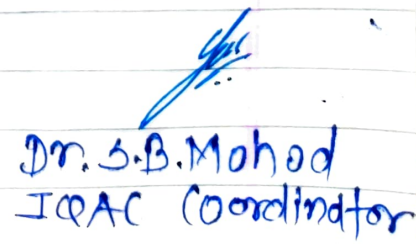 Dr. S.B. Mohod
IQAC Coordinator